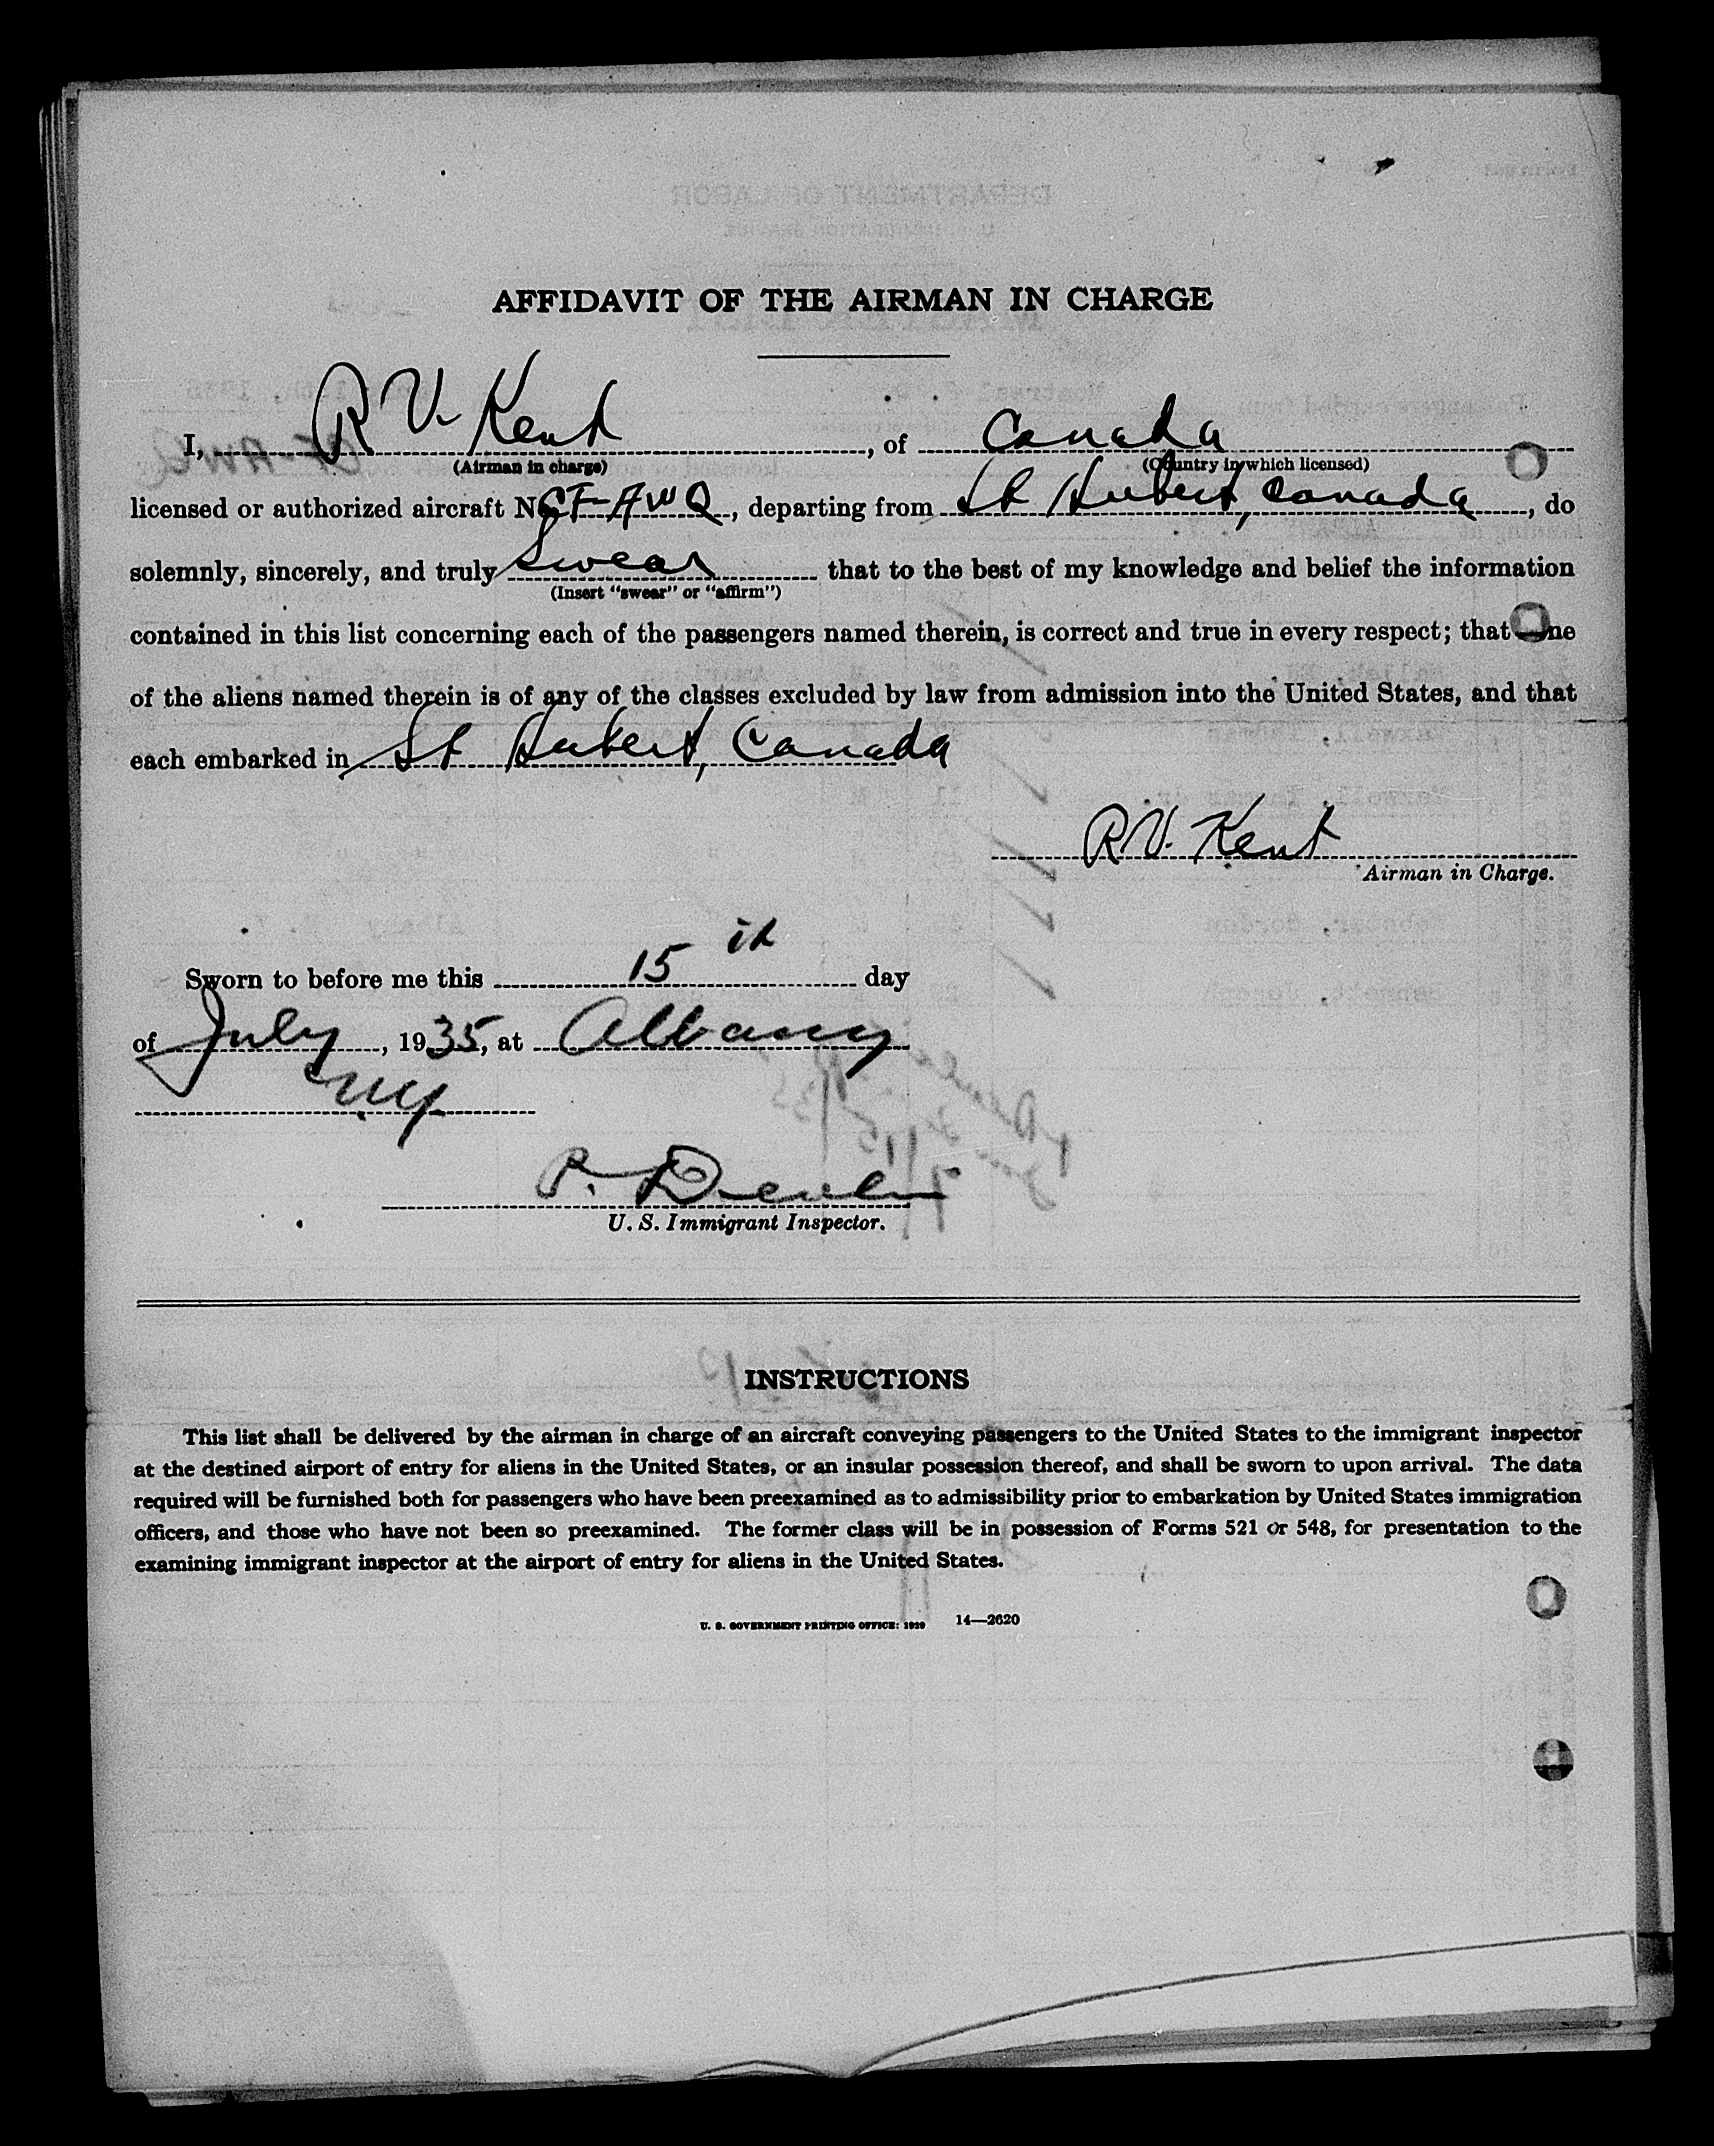 AFFIDAVIT OF THE AIRMAN IN CHARGE
I, R V. Kent, of Canada
(Airman in charge) (Country in which licensed)
licensed or authorized aircraft No. CF-AWQ, departing from St Hubert, Canada, do
solemnly, sincerely, and truly swear that to the best of my knowledge and belief the information
(Insert "swear" or "affirm")
contained in this list concerning each of the passengers named therein, is correct and true in every respect; that none
of the aliens named therein is of any of the classes excluded by law from admission into the United States, and that
each embarked in St Hubert, Canada
R.V. Kent
Airman in Charge.
Sworn to before me this 15th day
of July, 1935, at Albany
N.Y.
P.
U. S. Immigrant Inspector.
INSTRUCTIONS
This list shall be delivered by the airman in charge of an aircraft conveying passengers to the United States to the immigrant inspector
at the destined airport of entry for aliens in the United States, or an insular possession thereof, and shall be sworn to upon arrival. The data
required will be furnished both for passengers who have been preexamined as to admissibility prior to embarkation by United States immigration
officers, and those who have not been so preexamined. The former class will be in possession of Forms 521 or 548, for presentation to the
examining immigrant inspector at the airport of entry for aliens in the United States.
U. S. GOVERNMENT PRINTING OFFICE: 1929 14—2620